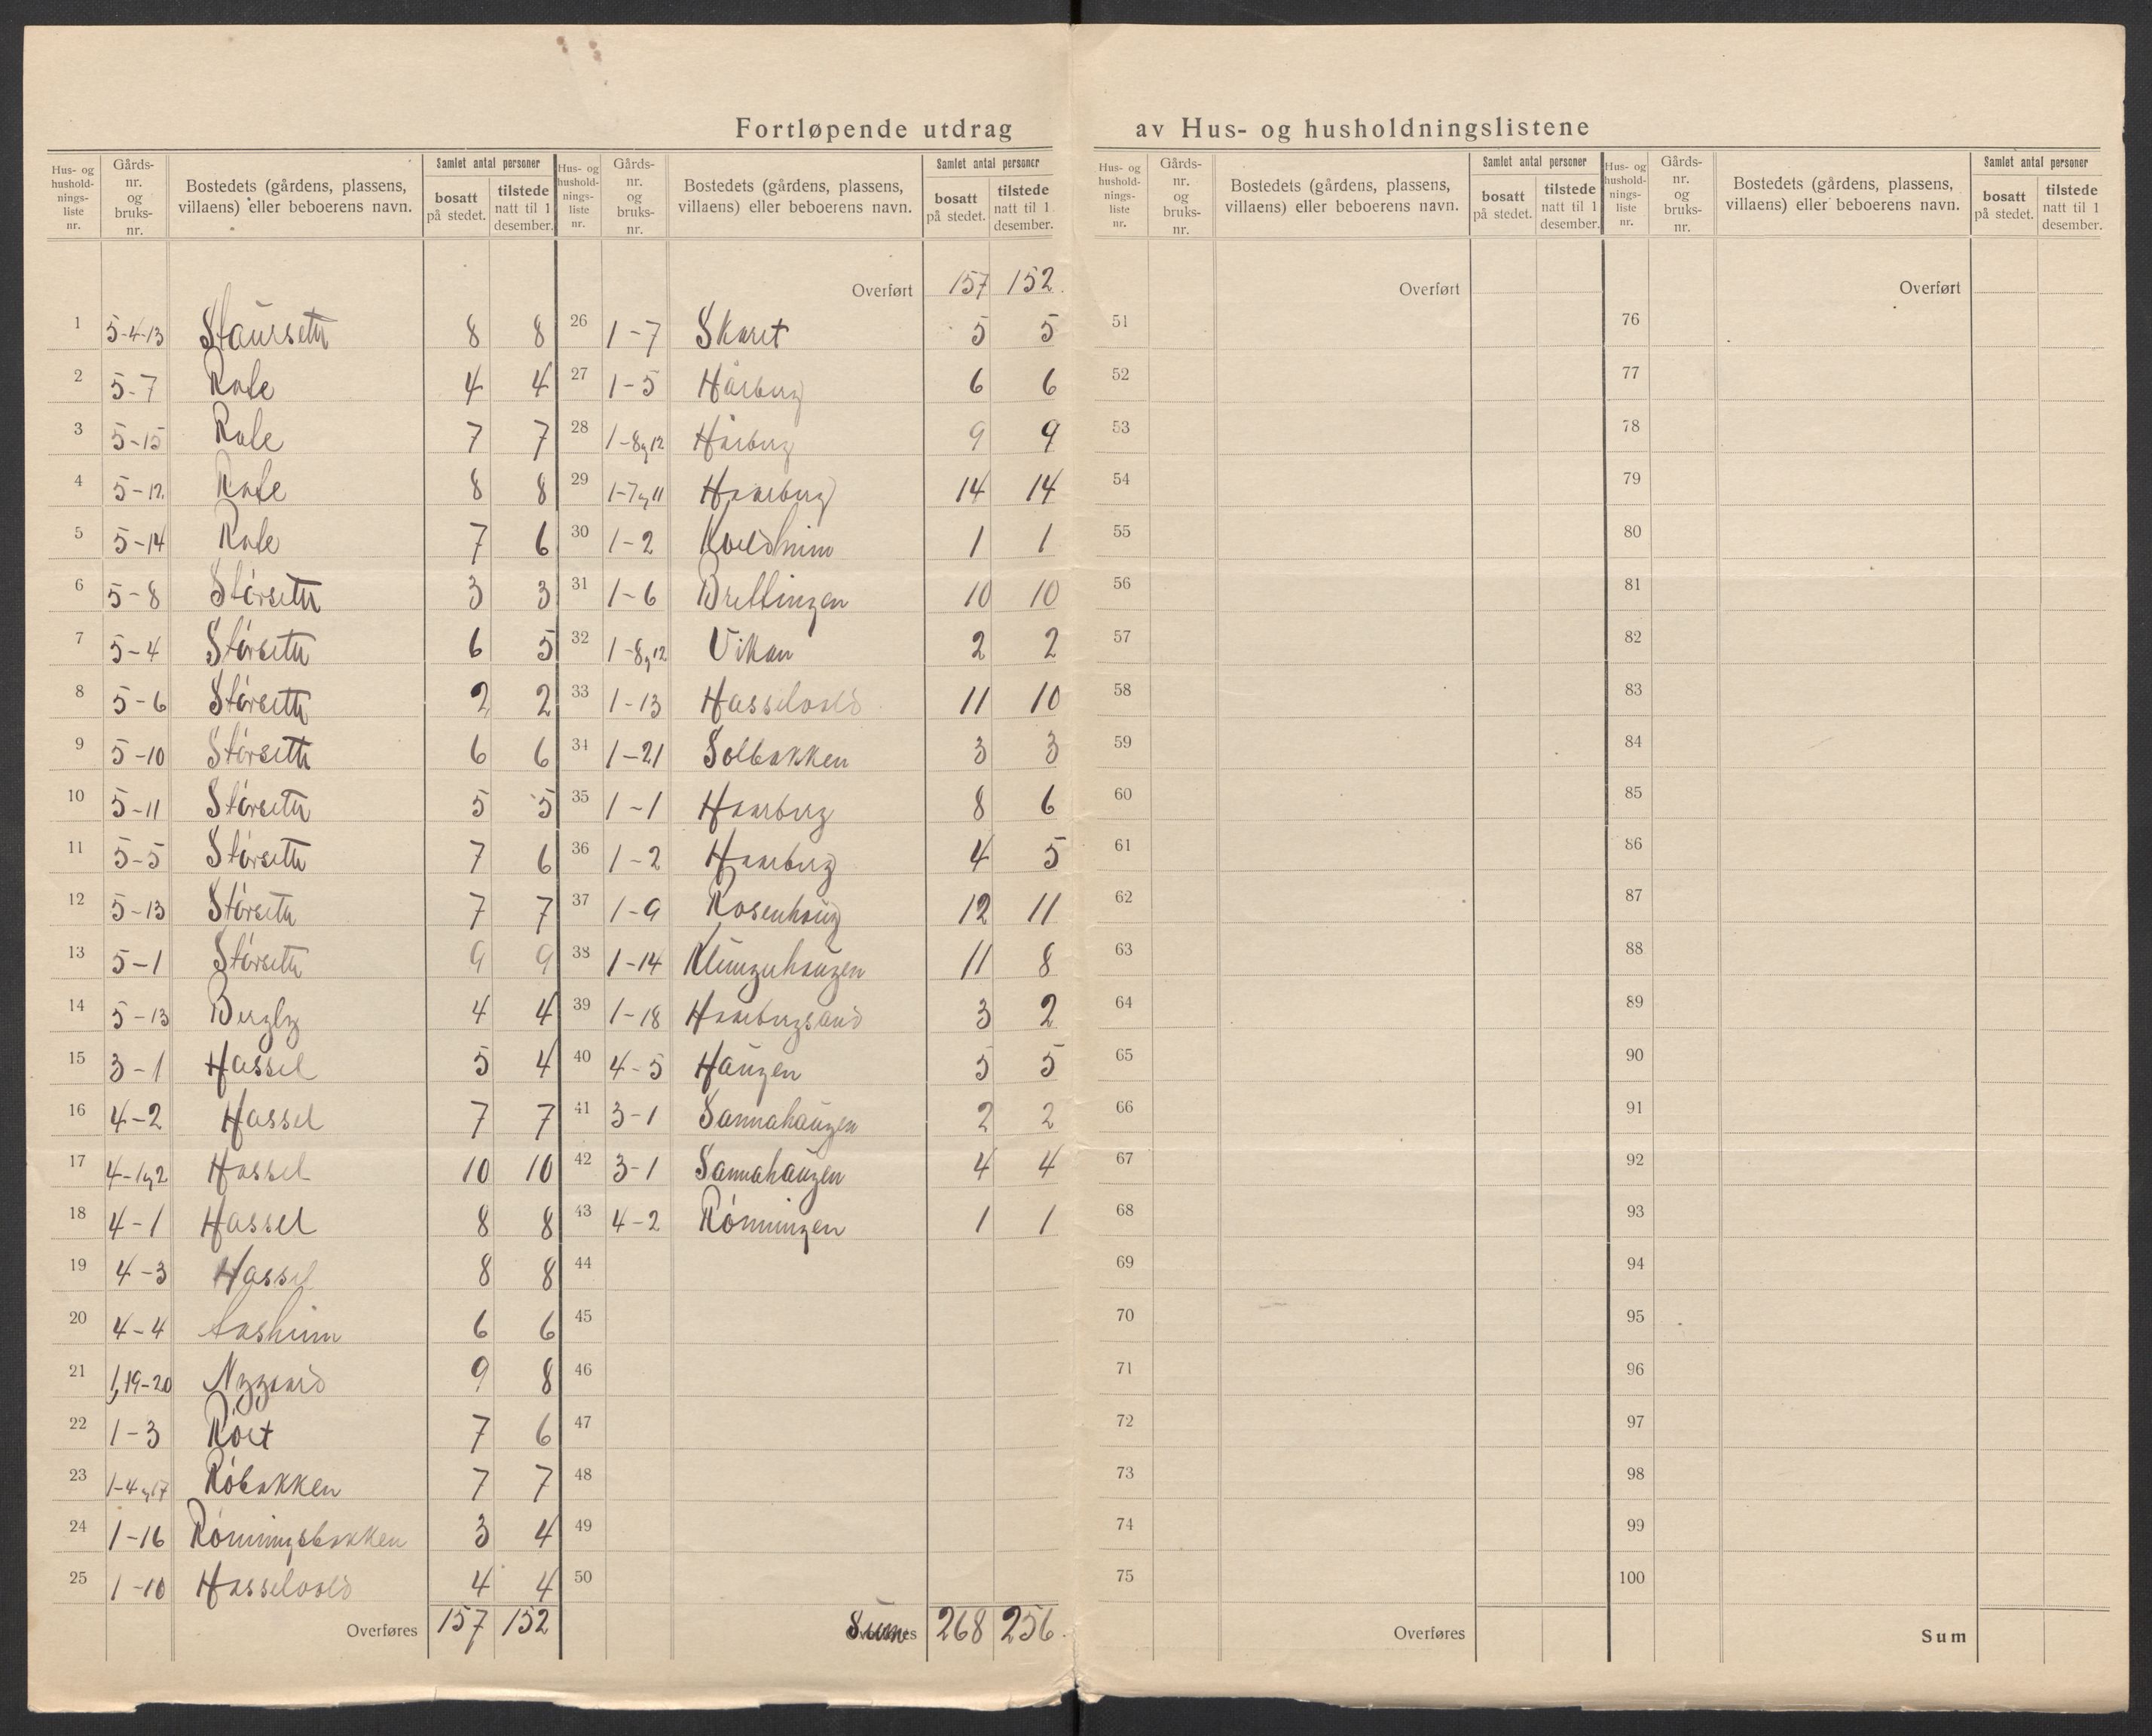 Fortløpende utdrag av Hus- og husholdningslistene
Hus- og hushold-nings-liste nr. | Gårds-nr. og bruks-nr. | Bostedets (gårdens, plassens, villaens) eller beboerens navn. | Samlet antal personer | bosatt på stedet. | tilstede natt til 1 desember.
1 5-4-13 Staurseth 8 8
2 5-7 Role 4 4
3 5-15 Role 7 7
4 5-12 Role 8 8
5 5-14 Role 7 6
6 5-8 Størseth 3 3
7 5-4 Størseth 6 5
8 5-6 Størseth 2 2
9 5-10 Størseth 6 6
10 5-11 Størseth 5 5
11 5-5 Størseth 7 6
12 5-13 Størseth 7 7
13 5-1 Størseth 9 9
14 5-13 Bergly 4 4
15 3-1 Hassel 5 4
16 4-2 Hassel 7 7
17 4-1,2 Hassel 10 10
18 4-1 Hassel 8 8
19 4-3 Hassel 8 8
20 4-4 Aasheim 6 6
21 1,19-20 Nygaard 9 8
22 1-3 Røet 7 6
23 1-4,17 Røbakken 7 7
24 1-16 Rønningsbakken 3 4
25 1-10 Hasselvold 4 4
Overføres 157 152
Hus- og hushold-nings-liste nr. | Gårds-nr. og bruks-nr. | Bostedets (gårdens, plassens, villaens) eller beboerens navn. | Samlet antal personer | bosatt på stedet. | tilstede natt til 1 desember.
Overført 157 152
26 1-7 Skaret 5 5
27 1-5 Hårberg 6 6
28 1-8,12 Hårberg 9 9
29 1-7,11 Haarberg 14 14
30 1-2 Kveldheim 1 1
31 1-6 Brettingen 10 10
32 1-8,12 Vikan 2 2
33 1-13 Hasselvold 11 10
34 1-21 Solbakken 3 3
35 1-1 Haarberg 8 6
36 1-2 Haarberg 4 5
37 1-9 Rosenhaug 12 11
38 1-14 Klungerhaugen 11 8
39 1-18 Haarbergsand 3 2
40 4-5 Haugen 5 5
41 3-1 Sannahaugen 2 2
42 3-1 Sannahaugen 4 4
43 4-2 Rønningen 1 1
44
45
46
47
48
49
50
Sum 268 256
Hus- og hushold-nings-liste nr. | Gårds-nr. og bruks-nr. | Bostedets (gårdens, plassens, villaens) eller beboerens navn. | Samlet antal personer | bosatt på stedet. | tilstede natt til 1 desember.
Overført
51
52
53
54
55
56
57
58
59
60
61
62
63
64
65
66
67
68
69
70
71
72
73
74
75
Overføres
Hus- og hushold-nings-liste nr. | Gårds-nr. og bruks-nr. | Bostedets (gårdens, plassens, villaens) eller beboerens navn. | Samlet antal personer | bosatt på stedet. | tilstede natt til 1 desember.
Overført
76
77
78
79
80
81
82
83
84
85
86
87
88
89
90
91
92
93
94
95
96
97
98
99
100
Sum